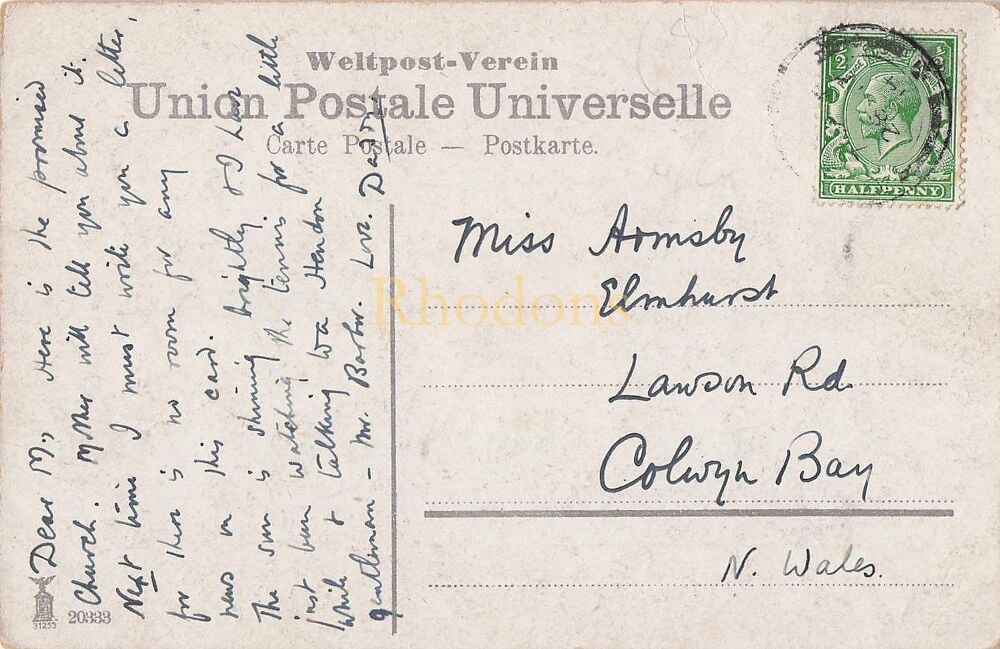 Weltpost-Verein
Union Postale Universelle
Carte Postale — Postkarte.
1/2 1/2
HALFPENNY
28
14
Dear M, Here is the promised
Church. Mother will tell you about it.
Next time I must write you a letter,
for there is no room for any
news on this card.
The sun is shining brightly & I have
just been watching the tennis for a little
while & talking to a Hendon
gentleman - Mr. Barber. Love. Daddy
Miss Armsby
Elmhurst
Lawson Rd.
Colwyn Bay
N. Wales.
Rhodons
31253
20333